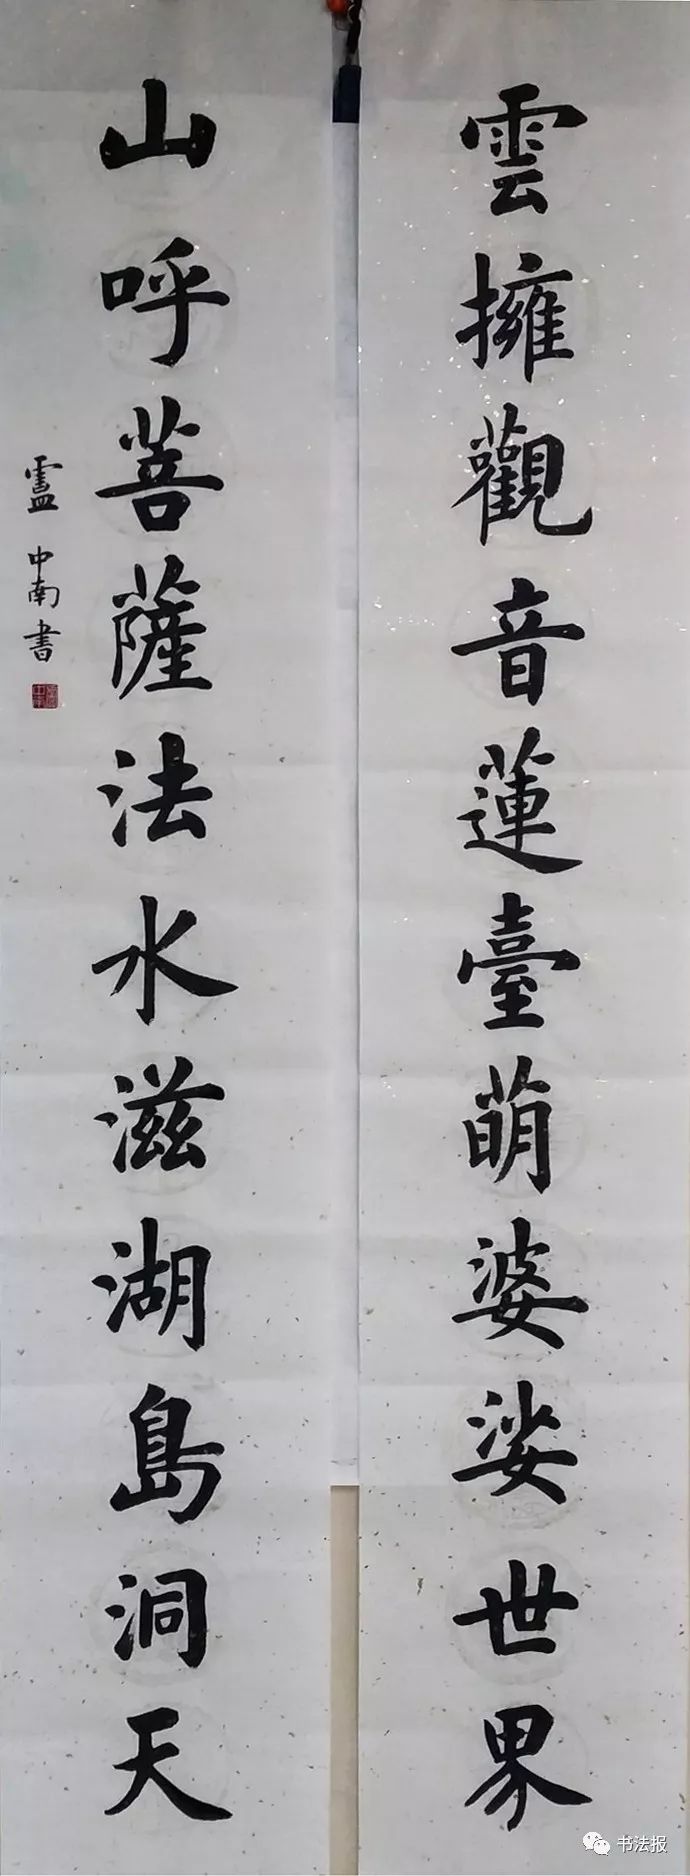 雲擁觀音蓮臺萌婆娑世界
山呼菩薩法水滋湖島洞天
盧中南書
书法报